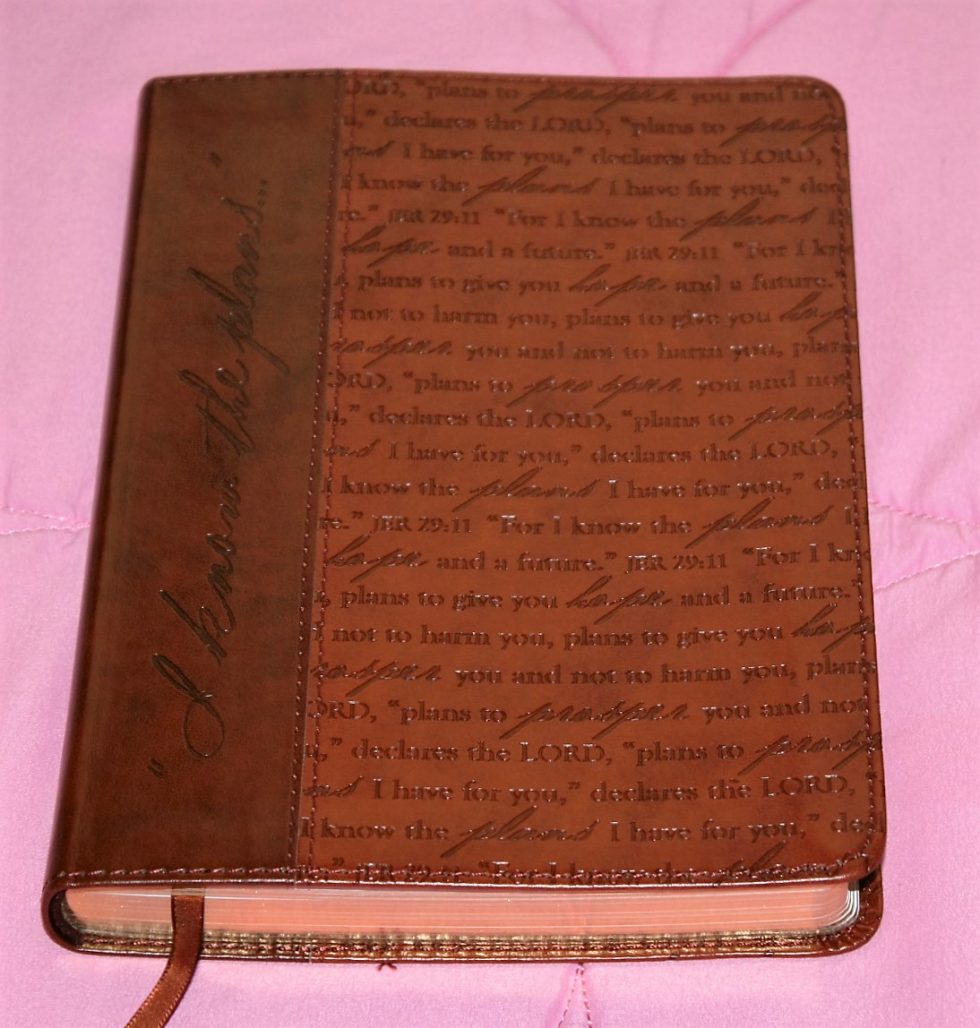 "I know the plans..."
ORD, "plans to prosper you and no
u," declares the LORD, "plans to prosp
ans I have for you," declares the LORD,
I know the plans I have for you," decl
re." JER 29:11 "For I know the plans I
hope and a future." JER 29:11 "For I kn
, plans to give you hope and a future."
not to harm you, plans to give you hop
rosper you and not to harm you, plan
ORD, "plans to prosper you and not
u," declares the LORD, "plans to prosp
ans I have for you," declares the LORD,
I know the plans I have for you," decl
re." JER 29:11 "For I know the plans I
hope and a future." JER 29:11 "For I kn
, plans to give you hope and a future."
not to harm you, plans to give you hop
rosper you and not to harm you, plan
ORD, "plans to prosper you and not
u," declares the LORD, "plans to prosp
ans I have for you," declares the LORD,
I know the plans I have for you," dec
" JER 29:11 "For I know the plans